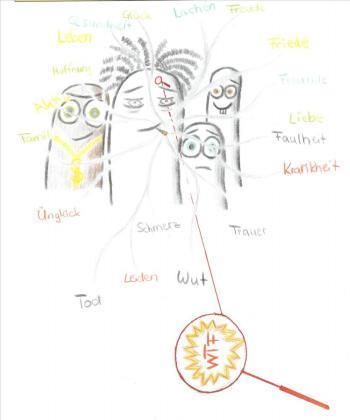 Glück
Lachen
Freude
Gesundheit
Leben
Friede
Hoffnung
Freunde
Liebe
Familie
Faulheit
Krankheit
Unglück
Schmerz
Trauer
Leiden
Wut
Tod